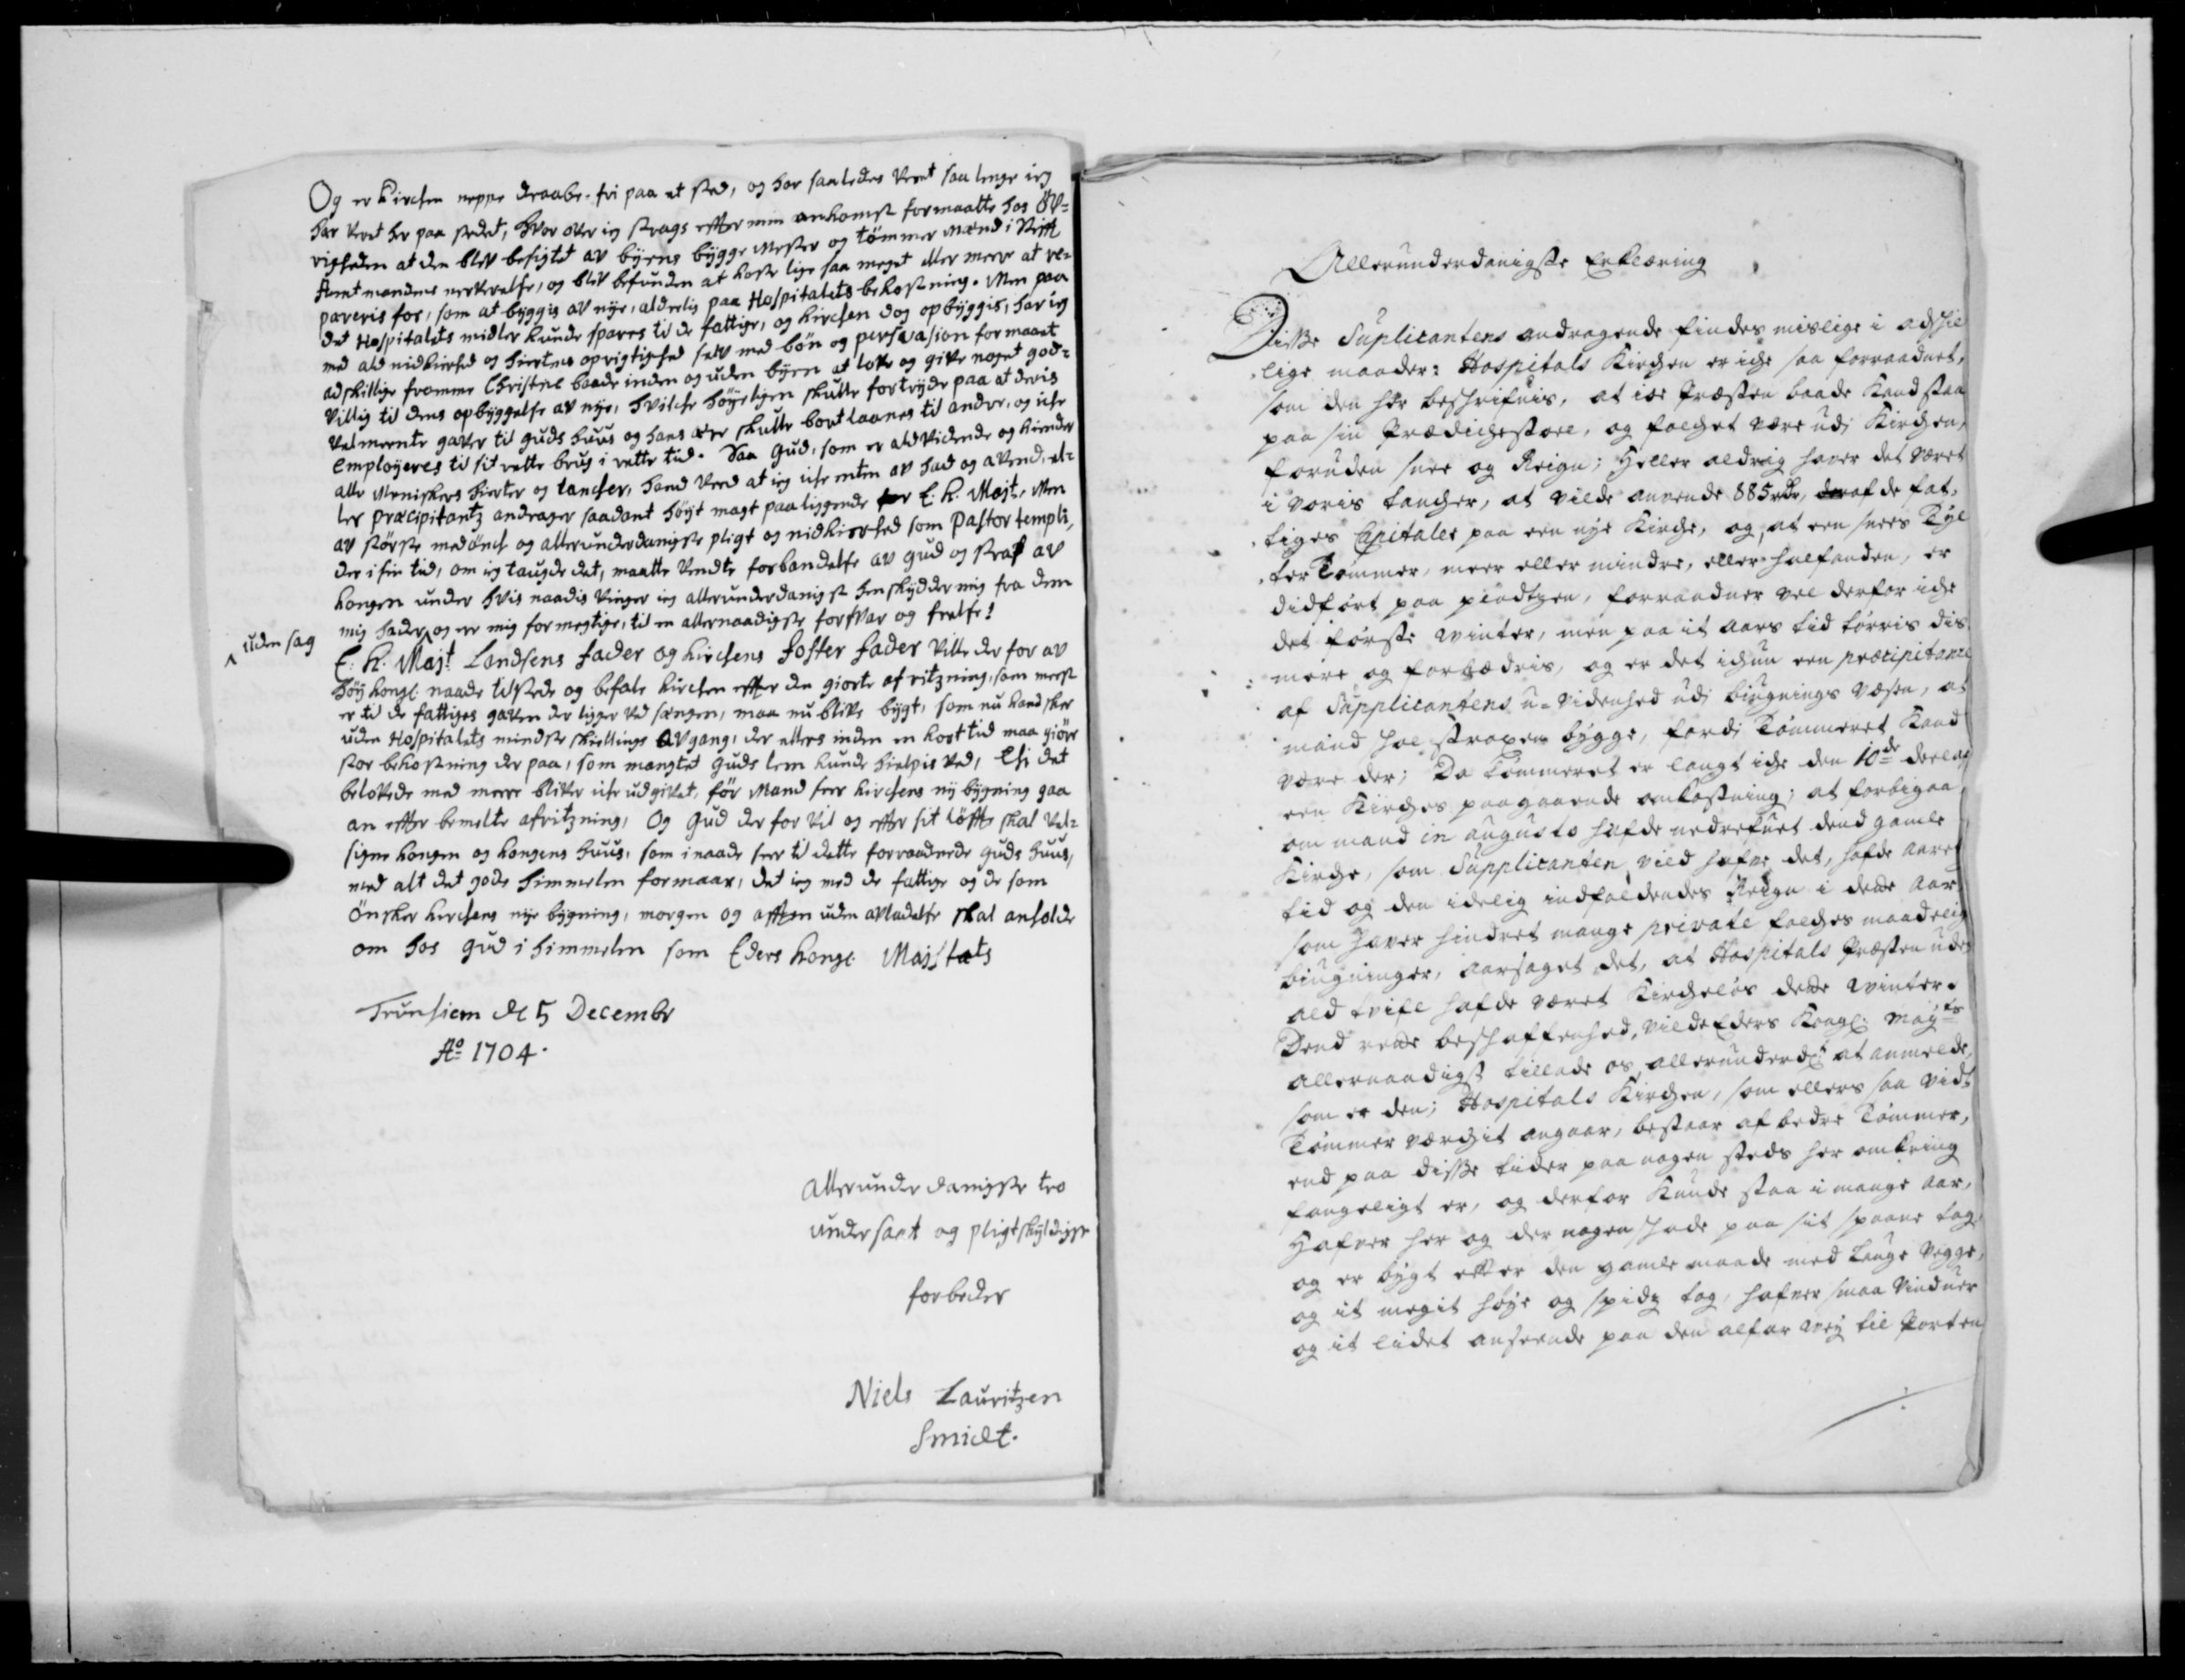 Og er Kirchen neppe draabe-fri paa et sted, og har saaledes veret saa lenge ieg
har veret her paa stedet, hvor over ieg strags effter min ankomst formaatte hos Öv=
righeden at den blev besigtet av byens bygge Mester og tömmer Mænd i Stifft
Amtmandens nerverelse, og blev befunden at koste lige saa meget eller meere at re=
pareris for, som at byggis av nye, alderlis paa Hospitalets bekostning. Men paa
det Hospitalets midler kunde spares til de fattige, og Kirchen dog opbyggis, har ieg
med ald nidkierhed og hiertens oprigtighed selv med bön og persvasion formaaet
adskillige fromme Christne baade inden og uden byen at love og give noget god=
villig til dens opbyggelse av nye, hvilche höyeligen skulle fortryde paa at deris
velmeente gaver til Guds huus og hans ære skulle bort laanes til andre, og iche
employeres til sit rette brug i rette tid. Saa Gud, som er aldvidende og kiender
alle Menniskers hierter og tancher, hand veed at ieg iche enten av had og avend, el=
ler præcipitantz andrager saadant höyt magt paaliggende for E. K. Majt. Men
av störste medönch og allerunderdanigste pligt og nidkierhed som Pastor templi,
der i sin tid, om ieg taugde det, maatte vendte forbandelse av Gud og straf av
Kongen under hvis naadis vinger ieg allerunderdanigst henskydder mig fra dem
mig hader og er mig formegtige, til en allernaadigste forsvar og frelse!
^ uden sag
E. K. Majt. Landsens Fader og Kirchens Foster Fader ville der for av
höy kongl. naade tilstede og befale Kirchen effter den giorte afritzning, som meest
er til de fattiges gavn der ligger ved sængen, maa nu blive bygt, som nu kand skee
uden Hospitalets mindste skillings Avgang, der ellers inden en kort tid maa giöre
stor bekostning der paa, som mangtet Guds lem kunde hielpis ved, Thi det
belovede med meere bliver iche udgivet, för Mand seer Kirchens ny bygning gaa
an effter bemelte afritzning, Og Gud der for vil og effter sit löffte skal vel=
signe Kongen og Kongens huus, som i naade seer til dette forraadnede Guds huus,
med alt det gode himmelen formaar, det ieg med de fattige og de som
önsker Kirchens nye bygning, morgen og afften uden avladelse skal anholde
om hos Gud i himmelen som Eders Kongl. Majstæts
Trunhiem de 5 Decembr
Ao 1704.
Allerunderdanigste tro
undersaat og pligtskyldigste
forbeder
Niels Lauritzen
Smidt.
Allerunderdanigste Erklæring
Disse Suplicantens andragende findes mislige i adskil
lige maader: Hospitals Kirchen er iche saa forraadnet,
som den her beschrifuis, at ioe Præsten baade Kand staa
paa sin Prædichestoel, og folchet være udj Kirchen,
foruden snee og Reign; Heller aldrig haver det været
i voris tancher, at vilde anvende 885 rdr, af de fat-
tiges Capitaler paa een nye Kirche, og, at een snees Tyl
ter Tømmer, meer eller mindre, eller halfanden, er
didført paa pladtzen, forraadner vel derfor iche
det første winter, men paa it aars tid tørris dis
mere og forbædris, og er det ichun een præcipitance
af Supplicantens u-videnhed udj biugnings væsen, at
mand skal strax bygge, fordj Tømmeret Kand
være der; Da Tømmeret er langt iche den 10de deel af
een Kirches paagaaende omkostning; at forbigaa,
om mand in augusto hafde nedrefuet dend gamle
Kirche, som Supplicanten vild hafue det, hafde aaret
tid og den idelig indfaldendes Reign i dette Aar
som hauer hindret mange private folches maadelig
biugninger, aarsaget det, at Hospitals Præsten uden
ald tvifl hafde været Kircheløs dette winter.
Dend rette beschaffenhed, vilde Eders Kongl. May:ts
allernaadigst tillade os allerunderd:st at anmelde,
som er den; Hospitals Kirchen, som ellers saa vidt
Tømmer værchit angaar, bestaar af bedre Tømmer,
end paa disse tider paa nogen steds her omkring
fangeligt er, og derfor Kunde staa i mange Aar,
Hafuer her og der nogen skade paa sit spaane tag,
og er bygt effter den gamle maade med lauge vegge,
og it megit høye og spidz tag, hafuer smaa vinduer
og it lidet anseende paa den alfar wey til Porten